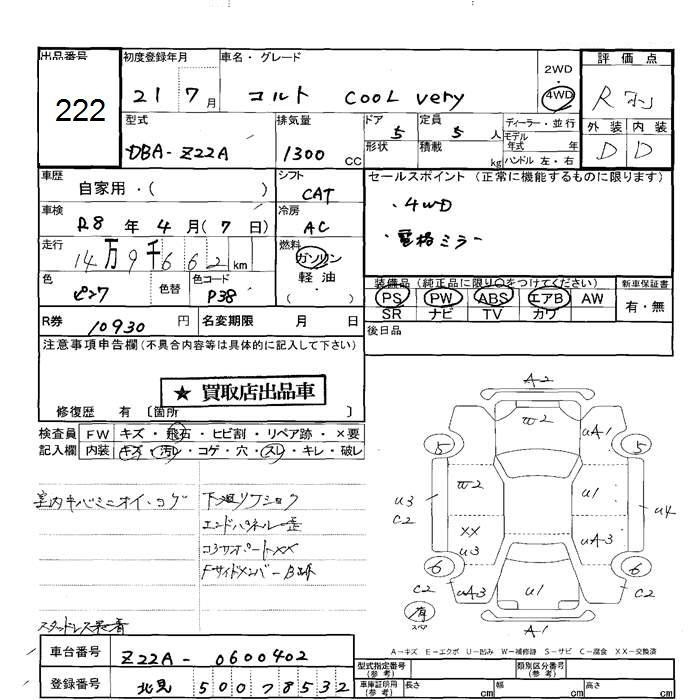 出品番号 初度登録年月 車名・グレード 2WD 4WD 評価点
222 21 7月 コルト COOL very R
外装 内装
D D
型式 排気量 ドア 定員 ディーラー・並行
DBA-Z22A 1300 CC 5 5 人 モデル年式 年
形状 積載 kg ハンドル 左・右
車歴 シフト セールスポイント(正常に機能するものに限ります)
自家用・( ) CAT ・4WD
車検 冷房 ・電格ミラー
R8 年 4 月(7 日) AC
走行 燃料
14万9千662 km ガソリン 軽油・( )
色 色替 色コード 装備品(純正品に限り○をつけてください) 新車保証書
ピンク P38 PS PW ABS エアB AW 有・無
SR ナビ TV カワ
R券 10930 円 名変期限 月 日 後日品
注意事項申告欄(不具合内容等は具体的に記入して下さい)
★ 買取店出品車
修復歴 有 〔箇所 〕
検査員 FW キズ・飛石・ヒビ割・リペア跡・×要
記入欄 内装 キズ・汚レ・コゲ・穴・スレ・キレ・破レ
室内キバミニオイ・コゲ 下廻リフショク
エンドパネル歪
コアサポートXX
スタッドレス装着
A2
W2 uA1
5 5
u3 W2 u1 u4
C2 XX u3 uA3
6 6
C2 uA3 u1 uA3 C2
有 スペア A1
A-キズ E-エクボ U-凹み W-補修跡 S-サビ C-腐食 XX-交換済
車台番号 Z22A-0600402 型式指定番号(参考) 類別区分番号(参考)
登録番号 北見 500 7 8532 車庫証明用(参考) 長さ cm 幅 cm 高さ cm